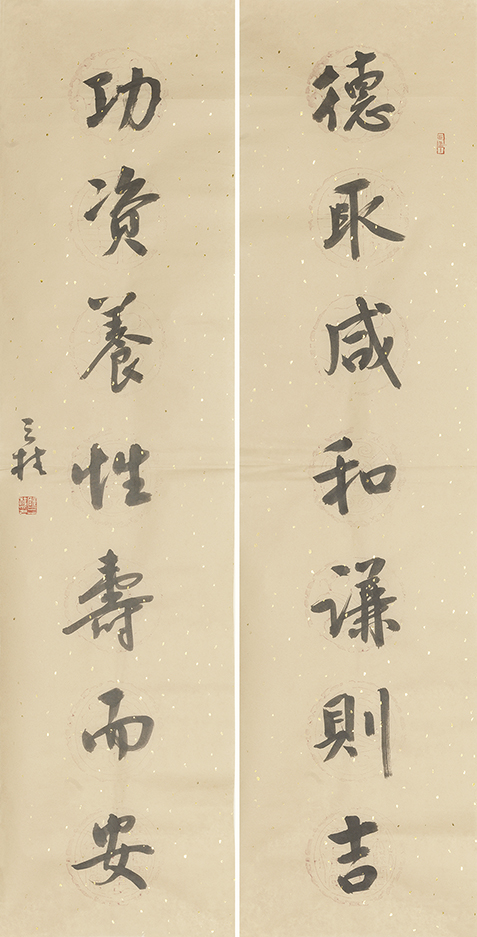 德取咸和謙則吉
功資養性壽而安